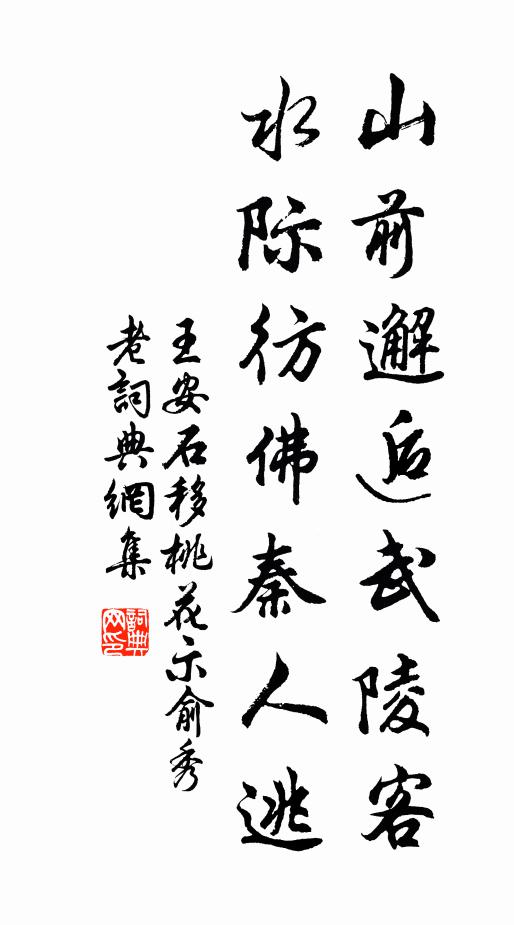 山前邂逅武陵客
水际彷佛秦人逃
王安石移桃花示俞秀
老詞典網集
詞典网印